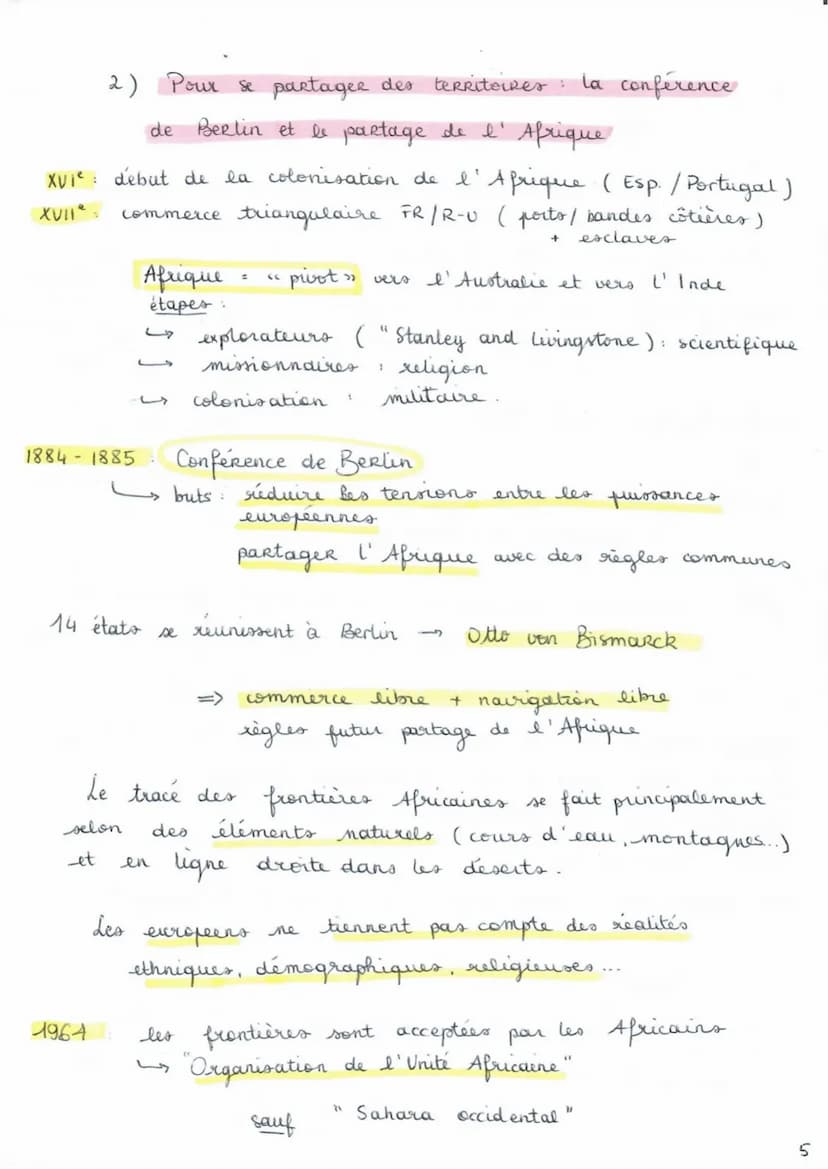 2) Pour se partager des territoires : la conférence
de Berlin et le partage de l'Afrique
XVIe : début de la colonisation de l'Afrique (Esp. / Portugal)
XVIIe : commerce triangulaire FR/R-U (ports/ bandes côtières)
+ esclaves
Afrique = "pivot" vers l'Australie et vers l'Inde
étapes :
↳ explorateurs ("Stanley and Livingstone) : scientifique
↳ missionnaires : religion
↳ colonisation : militaire.
1884 - 1885 : Conférence de Berlin
↳ buts : réduire les tensions entre les puissances
européennes
partager l'Afrique avec des règles communes
14 états se réunissent à Berlin → Otto von Bismarck
=> commerce libre + navigation libre
règles futur partage de l'Afrique
Le tracé des frontières Africaines se fait principalement
selon des éléments naturels (cours d'eau, montagnes...)
et en ligne droite dans les déserts.
Les europeens ne tiennent pas compte des réalités
ethniques, démographiques, religieuses...
1964 : les frontières sont acceptées par les Africains
↳ "Organisation de l'Unité Africaine"
sauf "Sahara occidental"
5